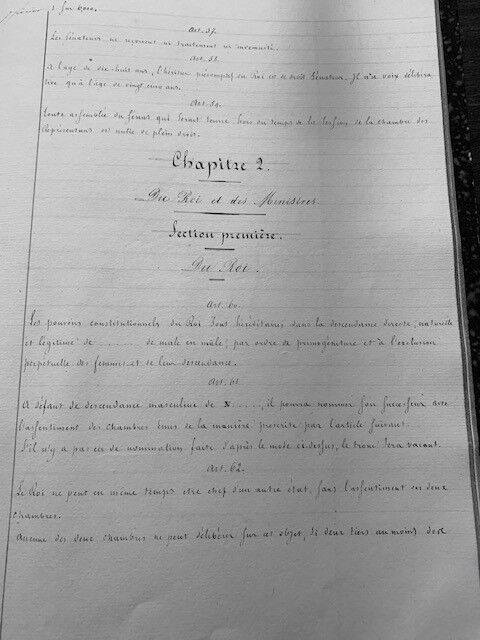 1 sur 6000.
Art. 57.
Les Sénateurs ne reçoivent ni traitement ni indemnité.
Art. 58.
A l'âge de dix-huit ans, l'héritier présomptif du Roi est de droit Sénateur. Il n'a voix délibéra
tive qu'à l'âge de vingt cinq ans.
Art. 59.
Toute assemblée du Sénat qui serait tenue hors du temps de la session de la chambre des
Représentans est nulle de plein droit.
Chapitre 2.
Du Roi et des Ministres
Section première.
Du Roi.
Art. 60.
Les pouvoirs constitutionnels du Roi sont héréditaires dans la descendance directe, naturelle
et légitime de ...... de male en male, par ordre de primogéniture et à l'exclusion
perpétuelle des femmes et de leur descendance.
Art. 61
A défaut de descendance masculine de N....., il pourra nommer son successeur avec
l'assentiment des Chambres émis de la manière prescrite par l'article suivant.
S'il n'y a pas eu de nomination faite d'après le mode ci-dessus, le trone sera vacant.
Art. 62.
Le Roi ne peut en même temps etre chef d'un autre état, sans l'assentiment des deux
chambres.
Aucune des deux chambres ne peut délibérer sur cet objet, si deux tiers au moins des